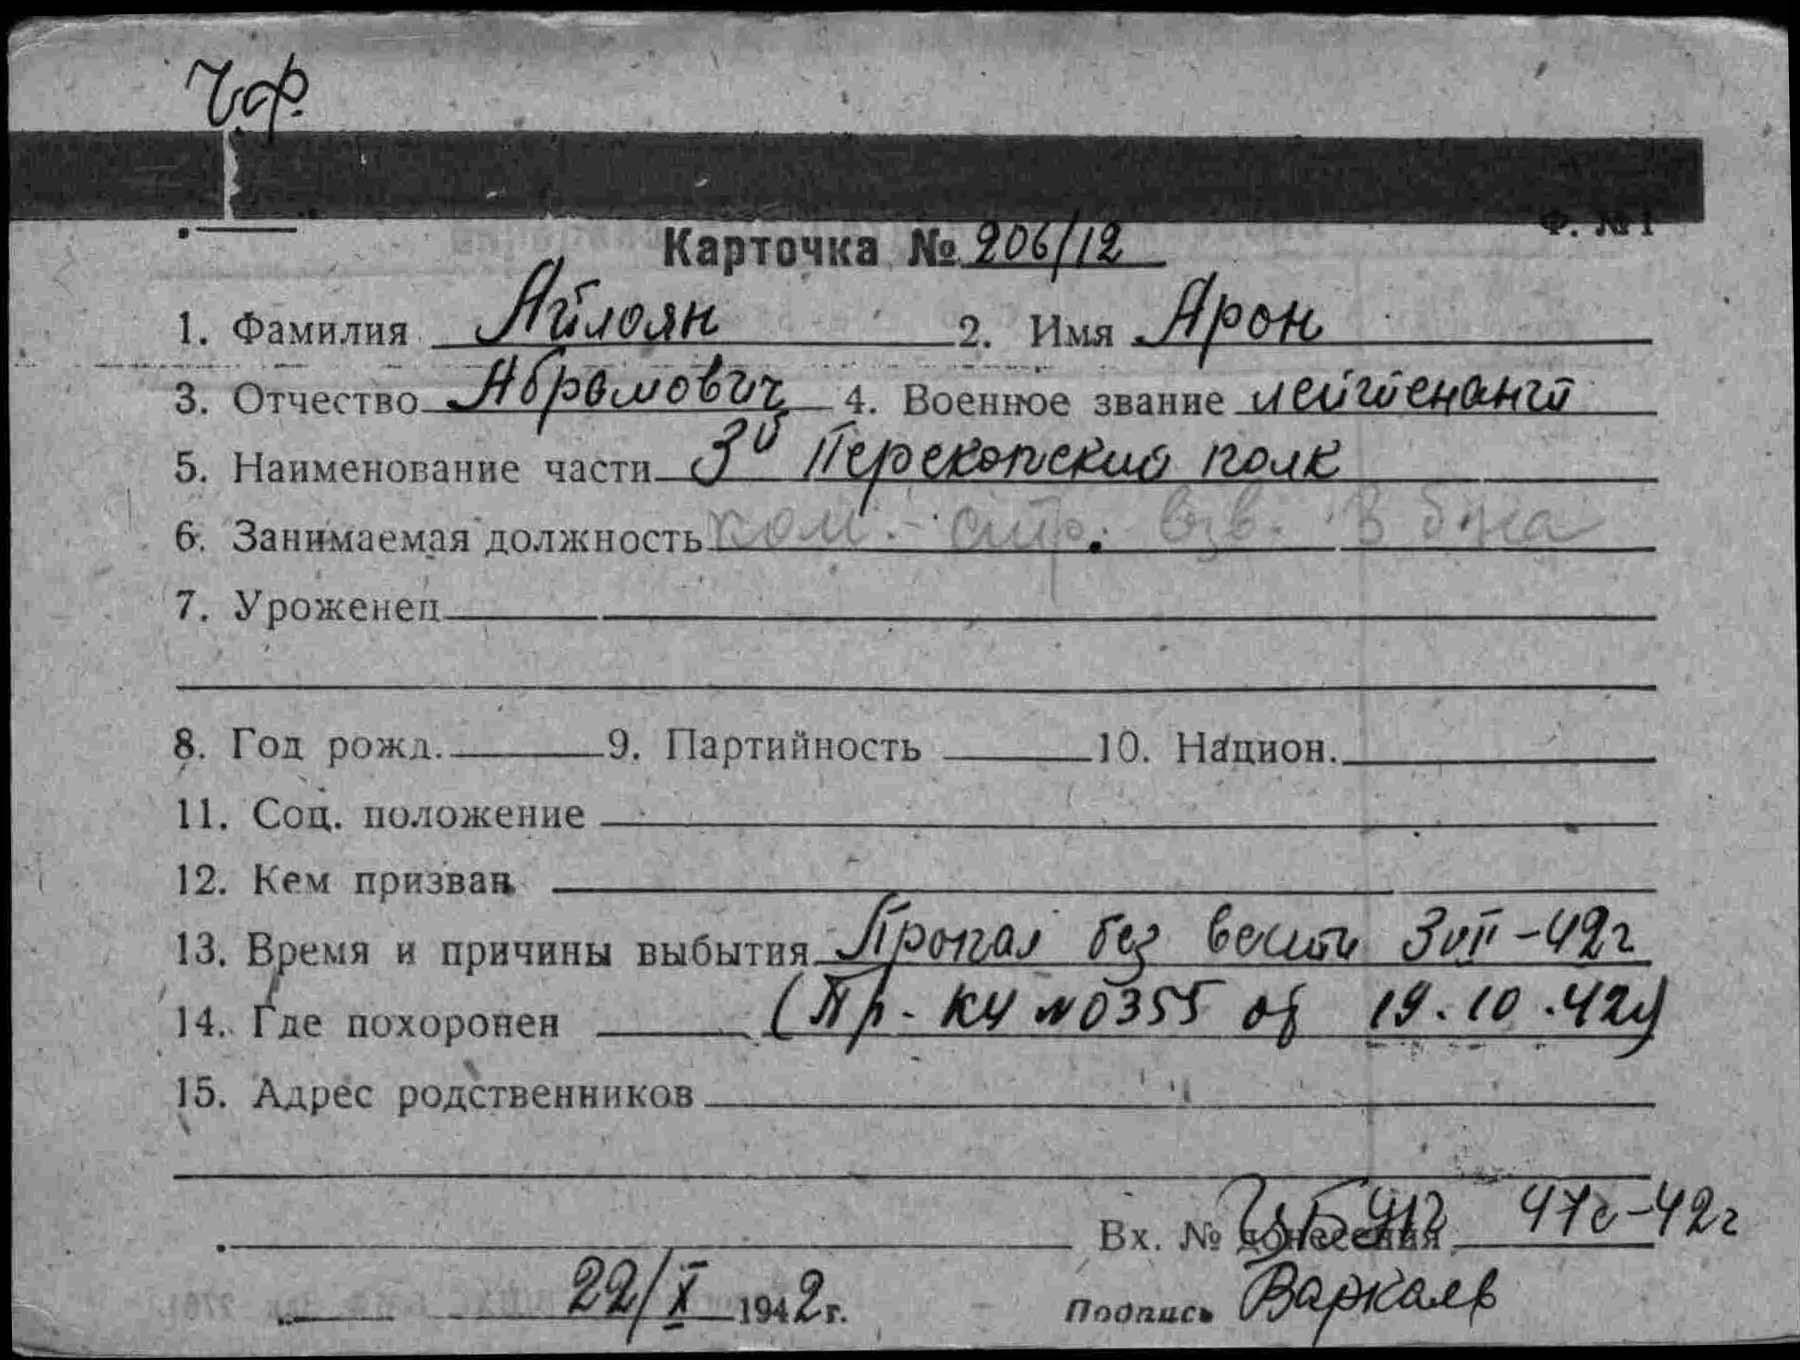 Ч.ф.
Ф. №1
Карточка № 206/12
1. Фамилия Айлоян 2. Имя Арон
3. Отчество Абрамович 4. Военное звание лейтенант
5. Наименование части 3й Перекопский полк
6. Занимаемая должность ком. стр. взв. 3 б-на
7. Уроженец
8. Год рожд. 9. Партийность 10. Национ.
11. Соц. положение
12. Кем призван
13. Время и причины выбытия Пропал без вести 3 VII-42г
14. Где похоронен (Пр. КЧ №0355 от 19.10.42г)
15. Адрес родственников
Вх. № донесения 47с-42г
22/X 1942г.
Подпись